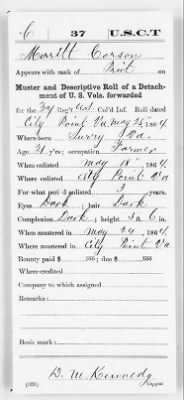 C 37 U.S.C.T
Merritt Carson
Appears with rank of Privt on
Muster and Descriptive Roll of a Detach-
ment of U. S. Vols. forwarded
for the 37 Reg't U.S. Col'd Inf. Roll dated
City Point Va May 25 186 4.
Where born Surry Va.
Age 21 y'rs; occupation Farmer
When enlisted May 18 186 4.
Where enlisted City Point Va
For what period enlisted 3 years.
Eyes Dark ; hair Dark
Complexion Dark ; height 5 ft. 6 in.
When mustered in May 24 , 186 4.
Where mustered in City Point Va
Bounty paid $ 100; due $ 100
Where credited
Company to which assigned
Remarks:
Book mark:
D. M. Kennedy
Copyist.